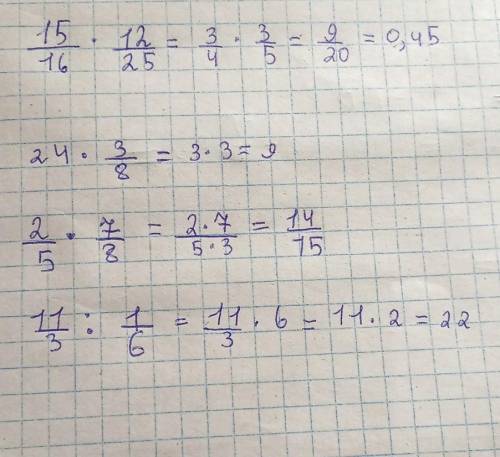 15/16 · 12/25 = 3/4 · 3/5 = 9/20 = 0,45
24 · 3/8 = 3 · 3 = 9
2/5 · 7/8 = 2·7/5·3 = 14/15
11/3 : 1/6 = 11/3 · 6 = 11 · 2 = 22